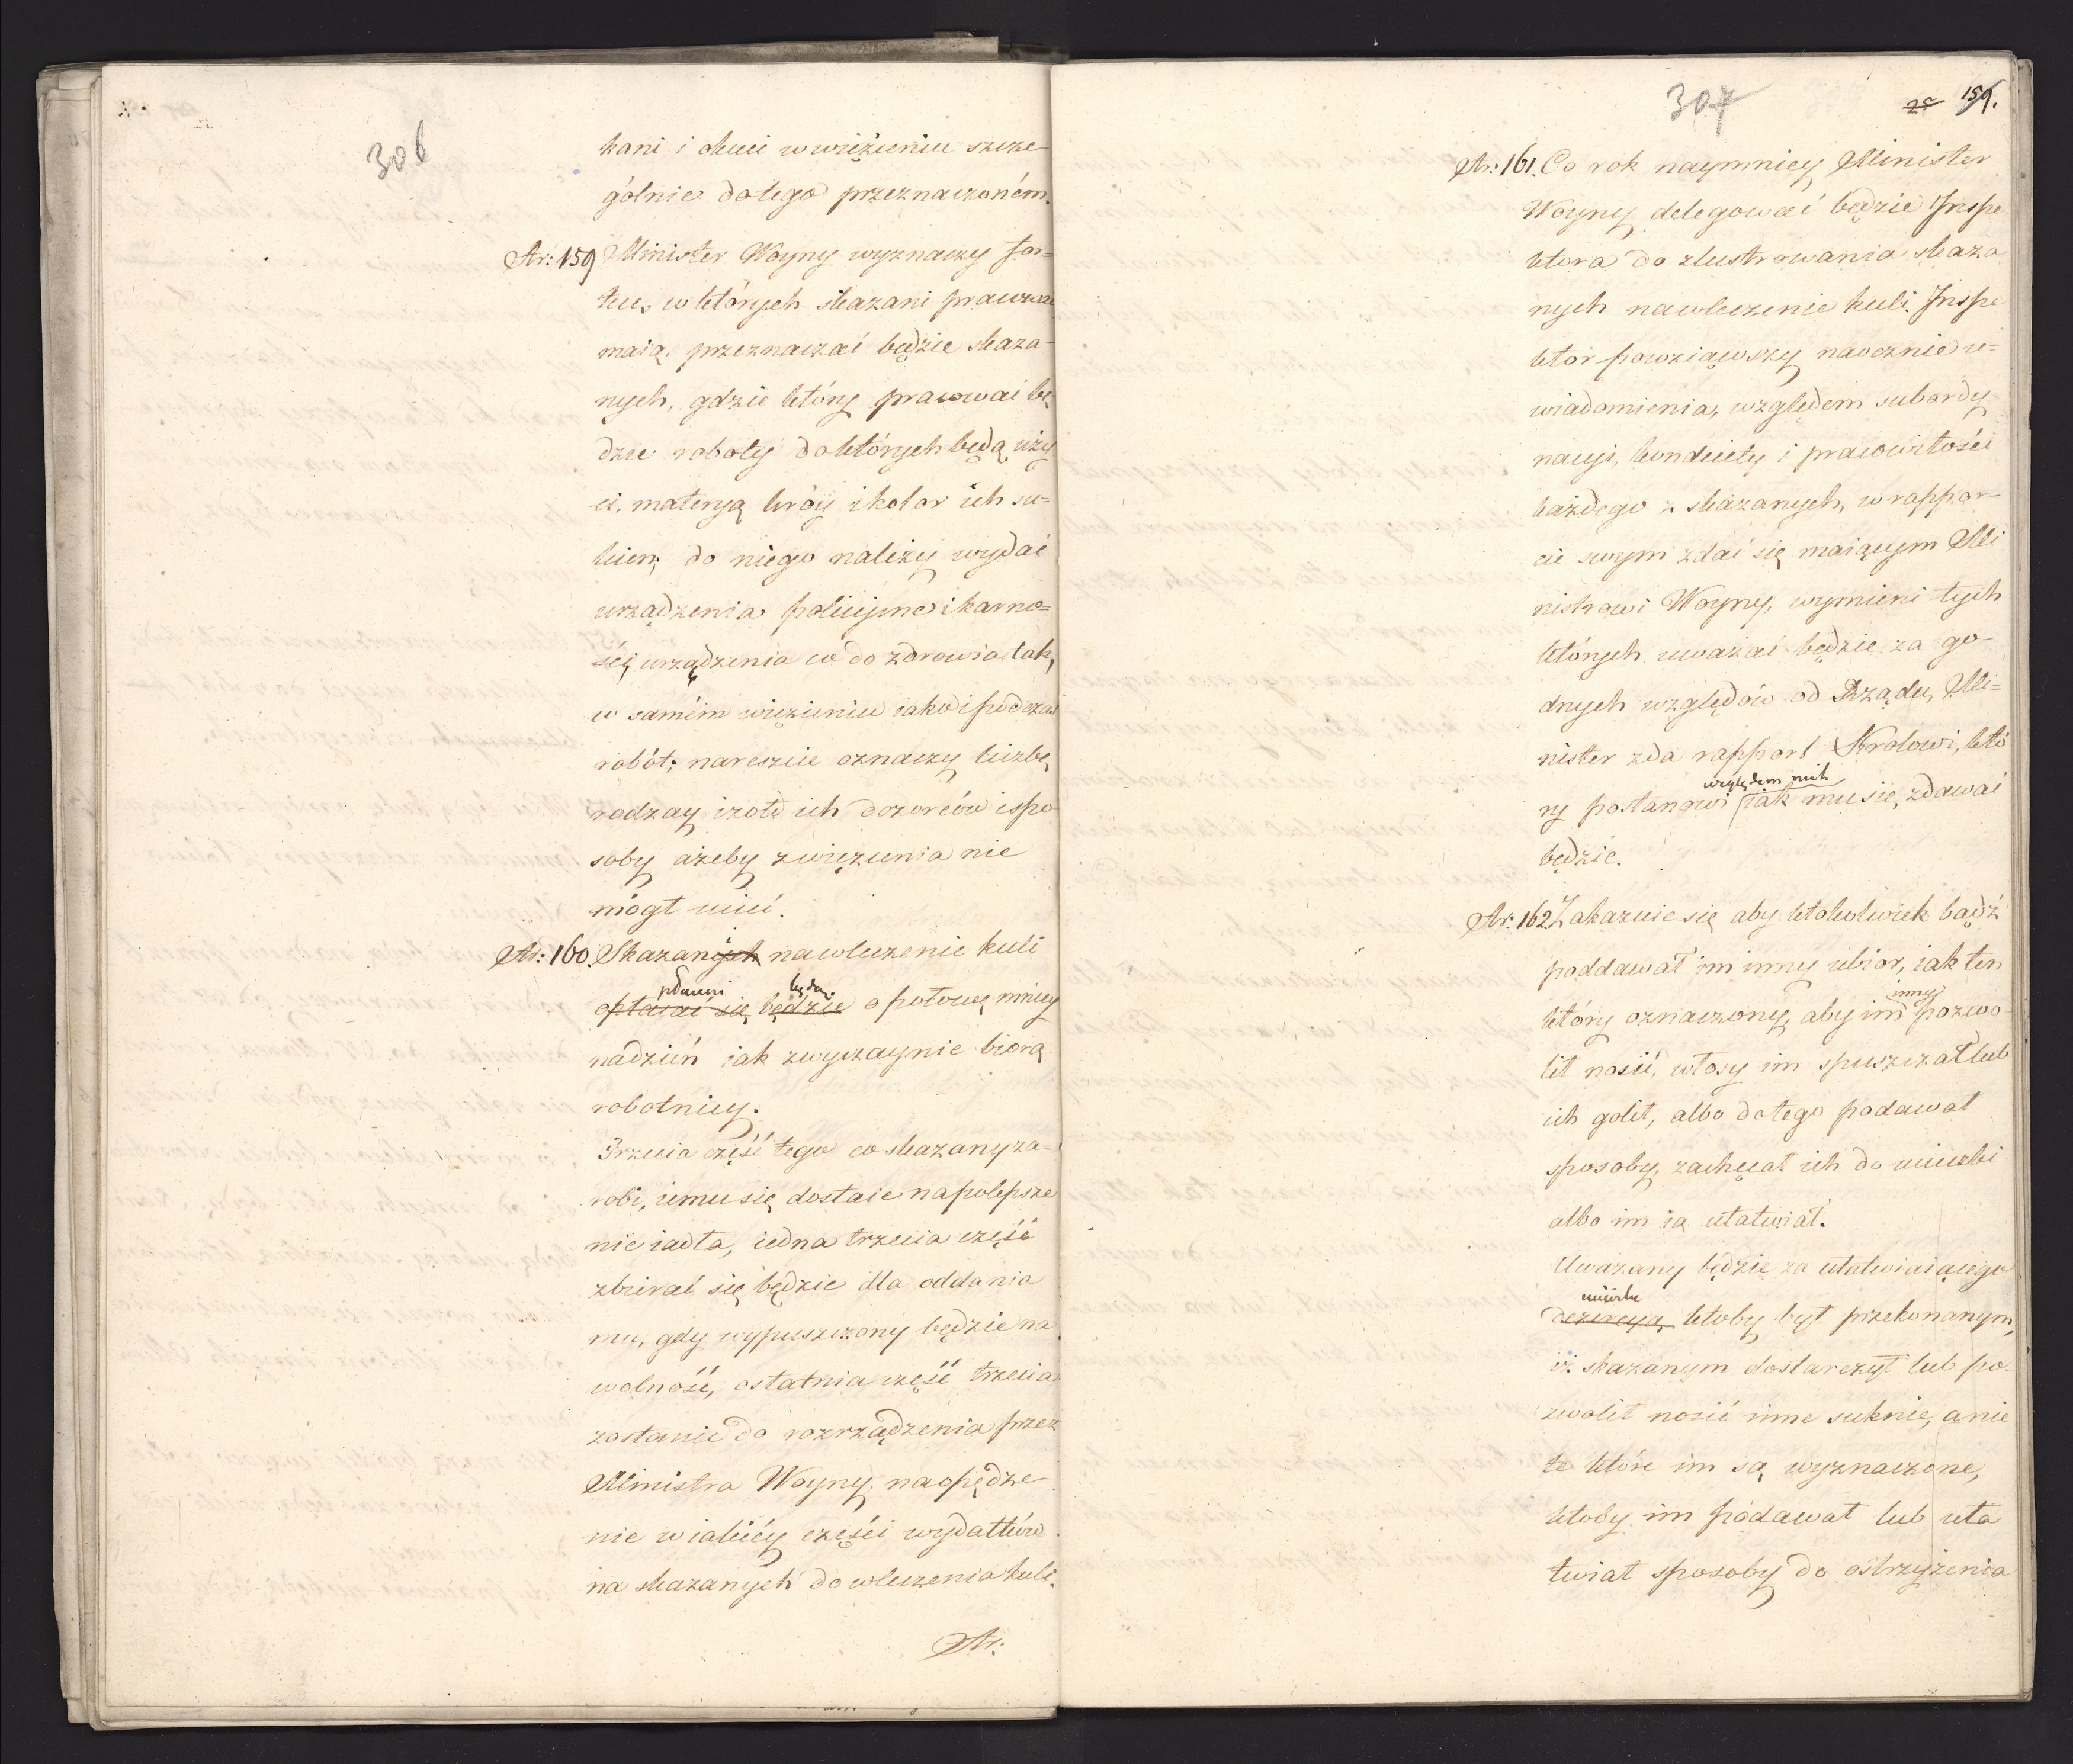 306
kani i okuci w więzieniu szcze
gólnie do tego przeznaczoném.
Ar: 159 Minister Woyny wyznaczy for=
tece, w których skazani pracować
maią, przeznaczać będzie skaza-
nych, gdzie który pracować bę
dzie roboty do których będą uży
ci, materyą króy i kolor ich su=
kien; do niego należy wydać
urządzenia policyjne i karno=
ści, urządzenia co do zdrowia tak,
w samém więzieniu iako i podczas
robót; nareszcie oznaczy liczbę,
rodzay i żołd ich dozorców i spo-
soby ażeby z więzienia nie
mógł uciec.
i
Ar: 160. Skazanych na wleczenie kuli
płaceni będą
opłacać się będzie o połowę mniey
na dzień iak zwyczaynie biorą
robotnicy.
Trzecia część tego co skazany za=
robi, iemu się dostaie na polepsze
nie iadła, iedna trzecia część
zbierać się będzie dla oddania
mu, gdy wypuszczony będzie na
wolność, ostatnia część trzecia
zostanie do rozrządzenia przez
Ministra Woyny, na opędze-
nie w iakiéy części wydatków
na skazanych do wleczenia kuli.
Ar:
307
28 159.
Ar: 161. Co rok naymniey Minister
Woyny delegować będzie Inspe
ktora do zlustrowania skaza
nych na wleczenie kuli. Inspe
ktor powziąwszy naocznie u=
wiadomienia, względem subordy
nacyi, kondiuty i pracowitości
każdego z skazanych, w rappor-
cie swym zdać się maiącym Mi
nistrowi Woyny, wymieni tych
których uważać będzie za go-
dnych względów od Rządu, Mi=
nister zda rapport Królowi, któ
względem nich
ry postanowi iak mu się, zdawać
będzie.
Ar: 162. Zakazuie się aby ktokolwiek bądź
poddawał im inny ubior, iak ten
inny
który oznaczony, aby im pozwo-
lił nosić, włosy im spuszczał lub
ich golił, albo do tego podawał
sposoby, zachęcał ich do ucieczki
albo im ią ułatwiał.
Uważany będzie za ułatwiaiącego
ucieczkę
dezercyą, ktoby był przekonanym,
iż skazanym dostarczył lub po-
zwolił nosić inne suknie, a nie
te które im są wyznaczone,
ktoby im podawał lub uła
twiał sposoby do ostrzyżenia